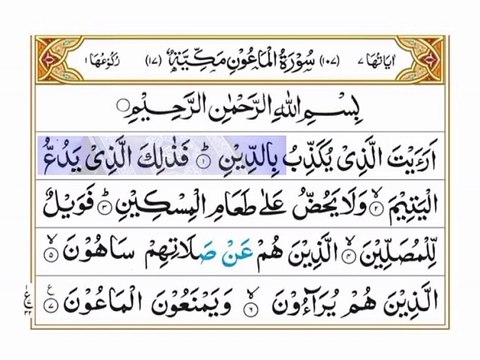 اٰیَاتُهَا ٧ (١٠٧) سُوْرَةُ الْمَاعُوْنِ مَكِّيَّةٌ (١٧) رُكُوْعُهَا ١
بِسْمِ اللّٰهِ الرَّحْمٰنِ الرَّحِيْمِ
اَرَءَيْتَ الَّذِىْ يُكَذِّبُ بِالدِّيْنِ ۝١ فَذٰلِكَ الَّذِىْ يَدُعُّ
الْيَتِيْمَ ۝٢ وَلَا يَحُضُّ عَلٰى طَعَامِ الْمِسْكِيْنِ ۝٣ فَوَيْلٌ
لِّلْمُصَلِّيْنَ ۝٤ الَّذِيْنَ هُمْ عَنْ صَلَاتِهِمْ سَاهُوْنَ ۝٥
الَّذِيْنَ هُمْ يُرَآءُوْنَ ۝٦ وَيَمْنَعُوْنَ الْمَاعُوْنَ ۝٧